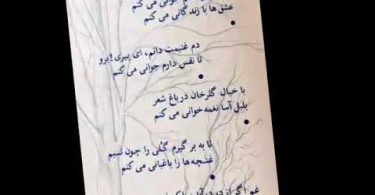 جوانی می کنم
عشق ها با زندگانی می کنم
دم غنیمت دانم، ای پیری! برو
تا نفس دارم جوانی می کنم
با خیال گلرخان در باغ شعر
بلبل آسا نغمه خوانی می کنم
تا به بر گیرم گلی را چون نسیم
غنچه ها را باغبانی می کنم